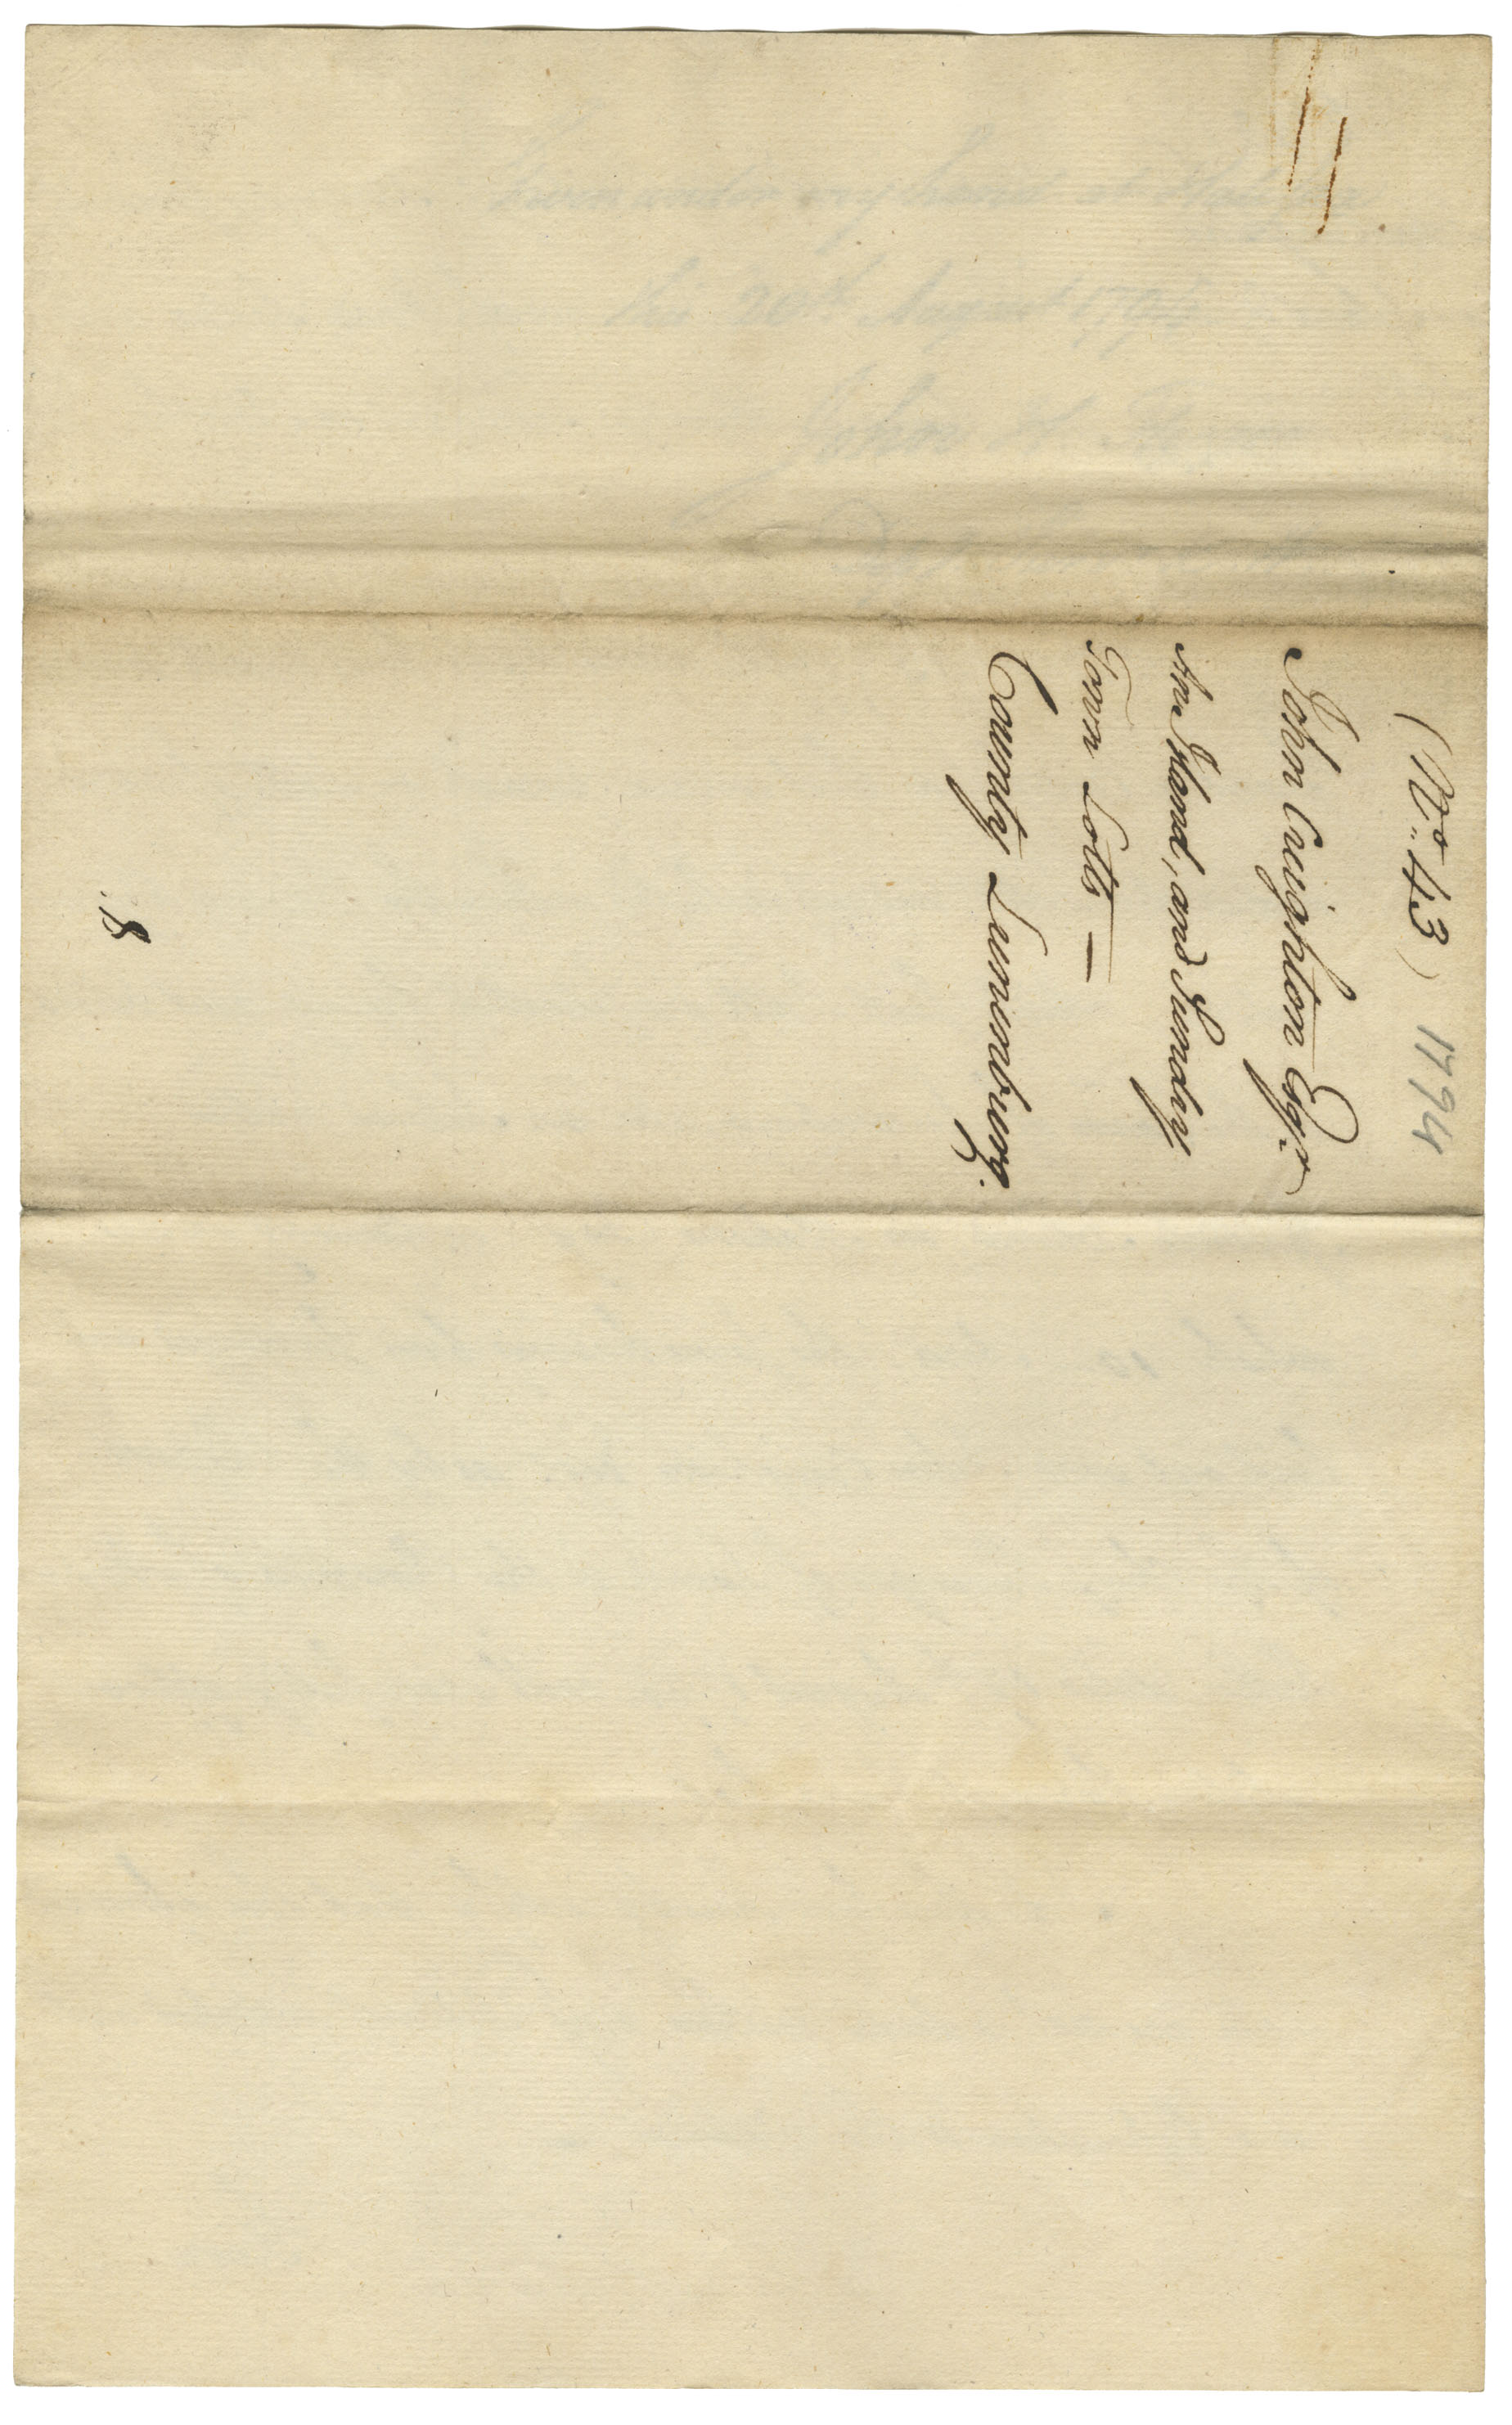 (No. 43) 1794
John Creighton Esqr.
An Island, and Sundry
Town Lotts —
County Lunenburg.
8